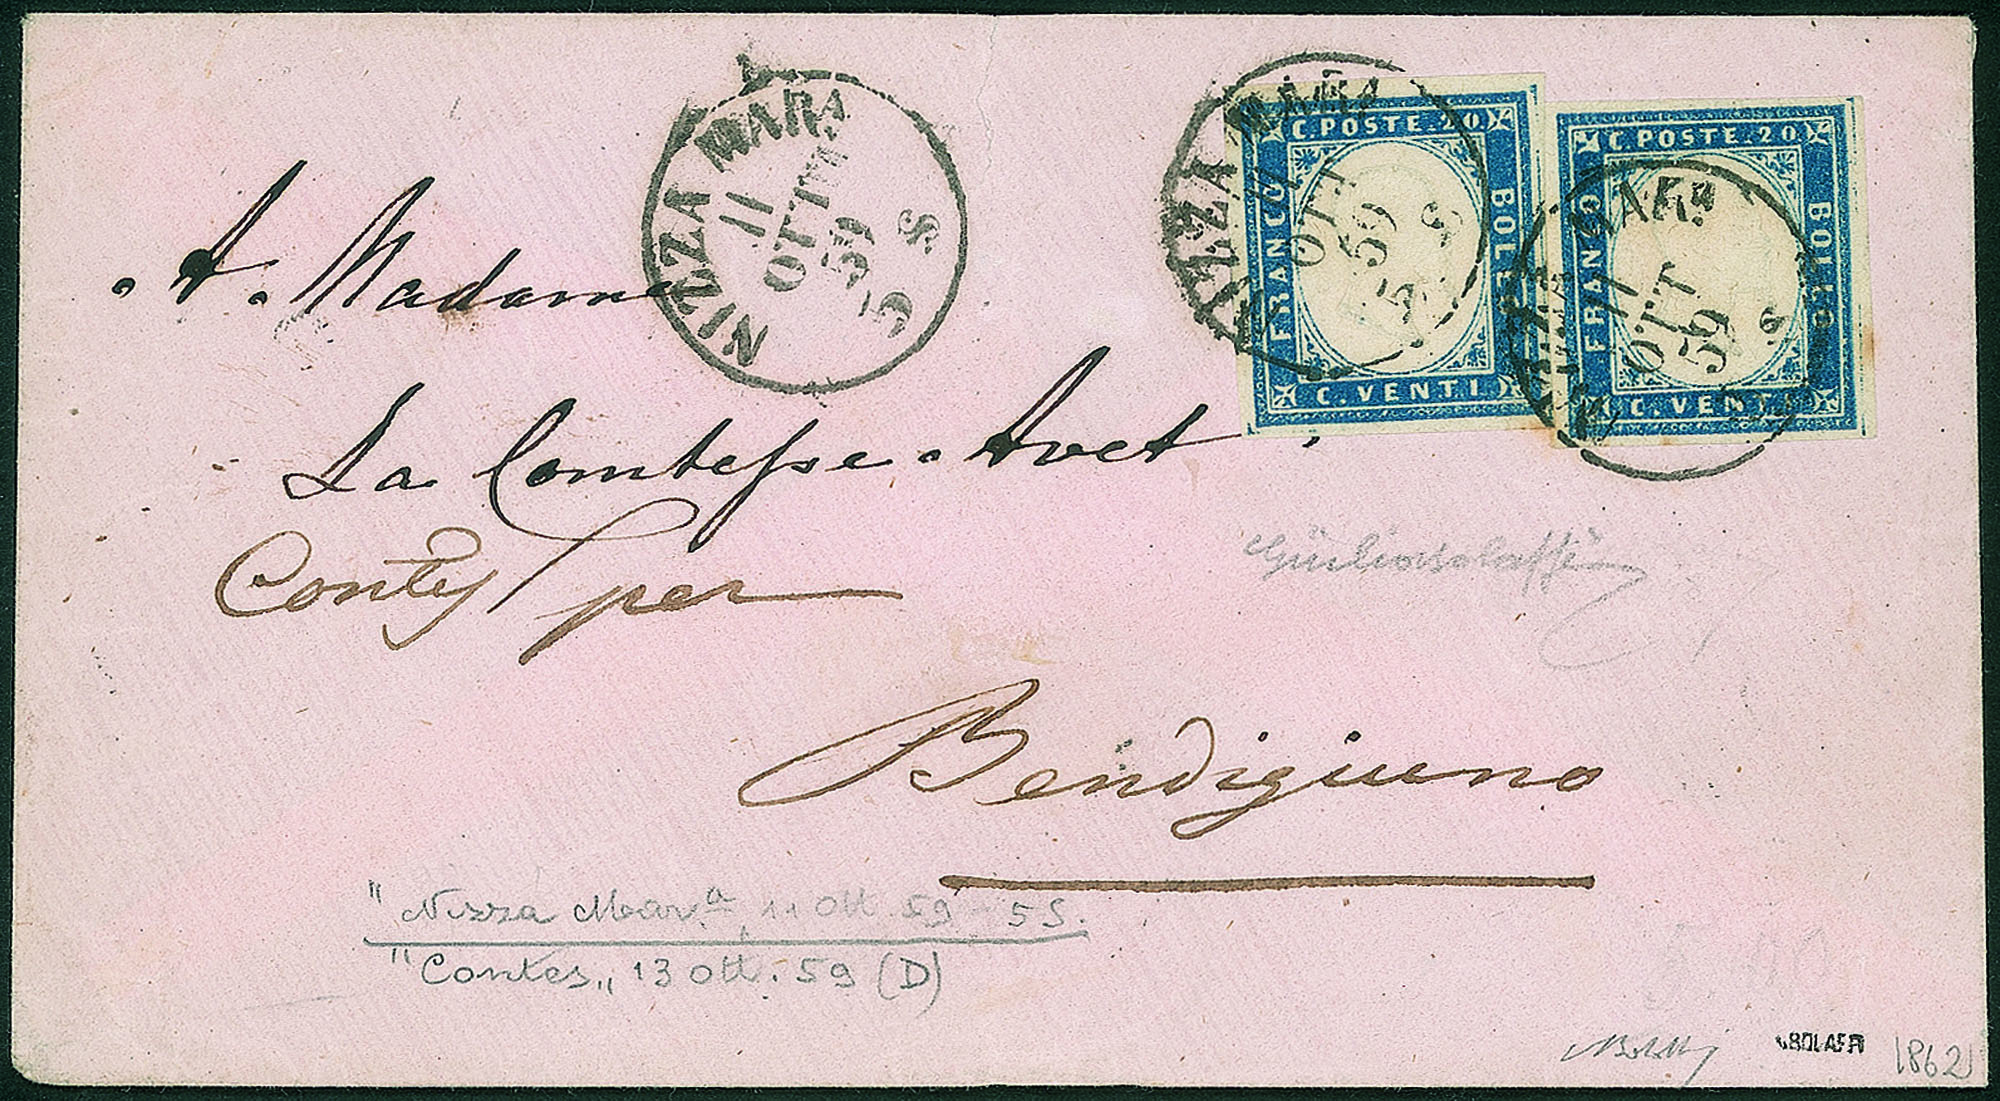 NIZZA MARA
11
OTT
59
5 S
NIZZA MARA
11
OTT
59
5 S
C. POSTE. 20
FRANCO
BOLLO
C. VENTI
C. POSTE. 20
FRANCO
BOLLO
C. VENTI
MARA
11
OTT
59
S
A. Madame
La Comtesse. Avet
Contes per
Bendigiuno
Giulio Bolaffi
"Nizza Mara 11 Ott 59 - 5 S.
"Contes„ 13 ott. 59 (D)
BOLAFFI
1862